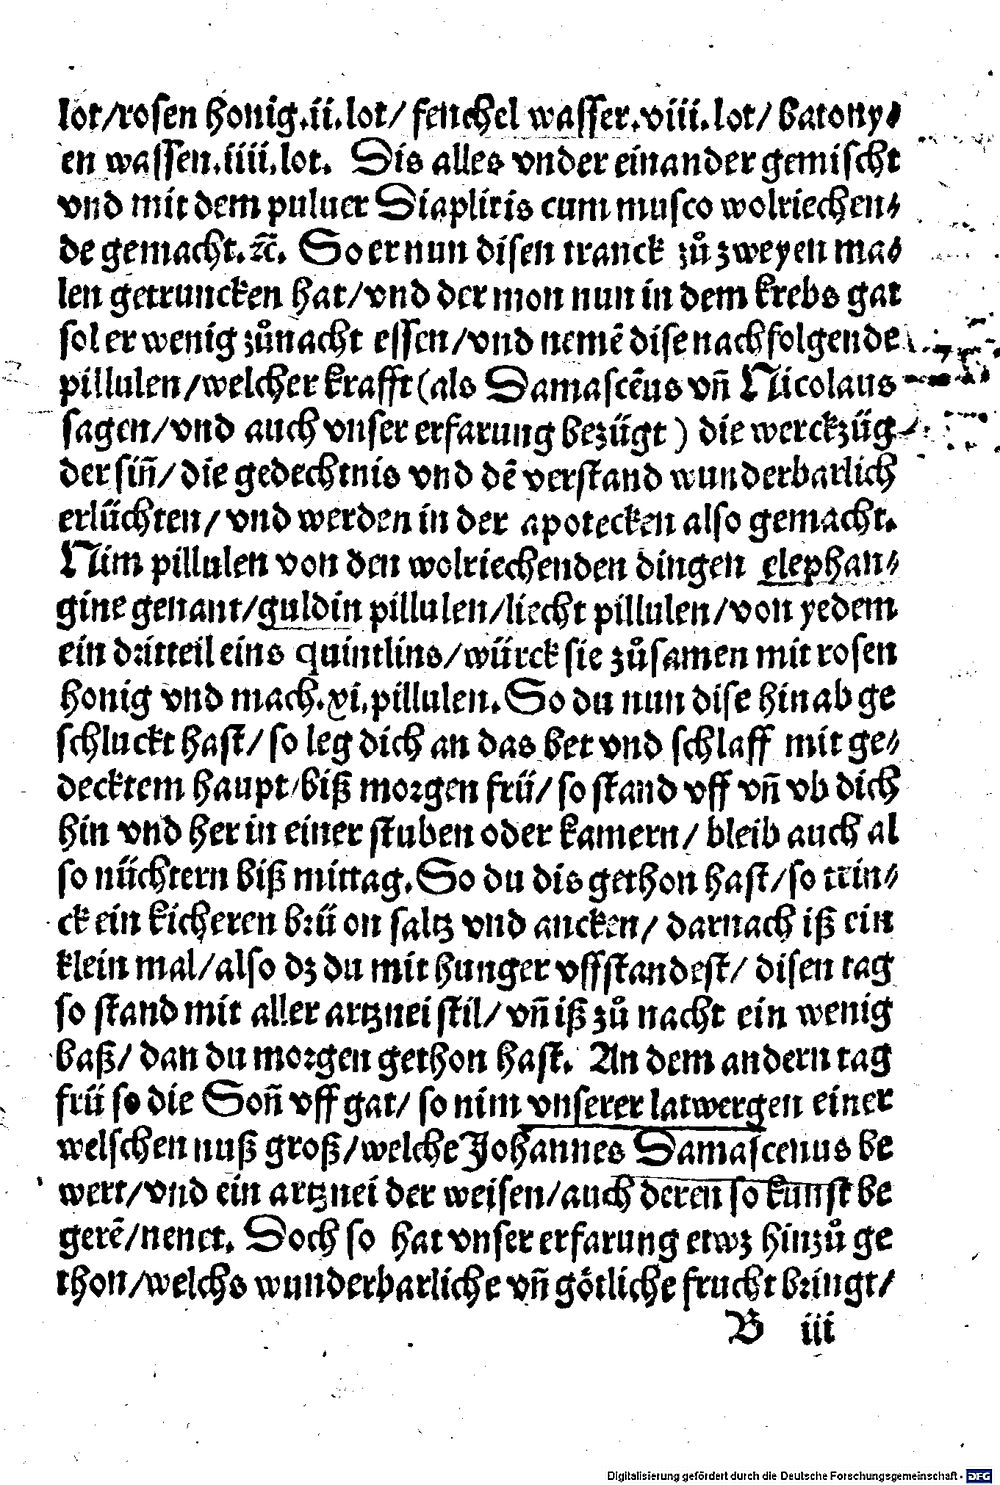 lot/rosen honig.ii.lot/ fenchel wasser.viii.lot/ batony⸗
en wassen.iiii.lot. Dis alles vnder einander gemischt
vnd mit dem puluer Diapliris cum musco wolriechen⸗
de gemacht.ꝛc̄. So er nun disen tranck zů zweyen ma⸗
len getruncken hat/vnd der mon nun in dem krebs gat
sol er wenig zůnacht essen/vnd nemē dise nachfolgende
pillulen/welcher krafft(als Damascēus vn̄ Nicolaus
sagen/vnd auch vnser erfarung bezügt) die werckzüg
der sin̄/die gedechtnis vnd dē verstand wunderbarlich
erlüchten/vnd werden in der apotecken also gemacht.
Nim pillulen von den wolriechenden dingen elephan⸗
gine genant/guldin pillulen/liecht pillulen/von yedem
ein dritteil eins quintlins/würck sie zůsamen mit rosen
honig vnd mach.xi.pillulen.So du nun dise hinab ge
schluckt hast/so leg dich an das bet vnd schlaff mit ge⸗
decktem haupt/biß morgen frü/so stand vff vn̄ vb dich
hin vnd her in einer stuben oder kamern/bleib auch al
so nüchtern biß mittag.So du dis gethon hast/so trin⸗
ck ein kicheren brü on saltz vnd ancken/ darnach iß ein
klein mal/also dz du mit hunger vffstandest/ disen tag
so stand mit aller artznei stil/vn̄ iß zů nacht ein wenig
baß/ dan du morgen gethon hast. An dem andern tag
frü so die Son̄ vff gat/ so nim vnserer latwergen einer
welschen nuß groß/welche Johannes Damascenus be
wert/vnd ein artznei der weisen/auch deren so kunst be
gerē/nenet. Doch so hat vnser erfarung etwz hinzů ge
thon/welchs wunderbarliche vn̄ götliche frucht bringt/
B iii
Digitalisierung gefördert durch die Deutsche Forschungsgemeinschaft - DFG